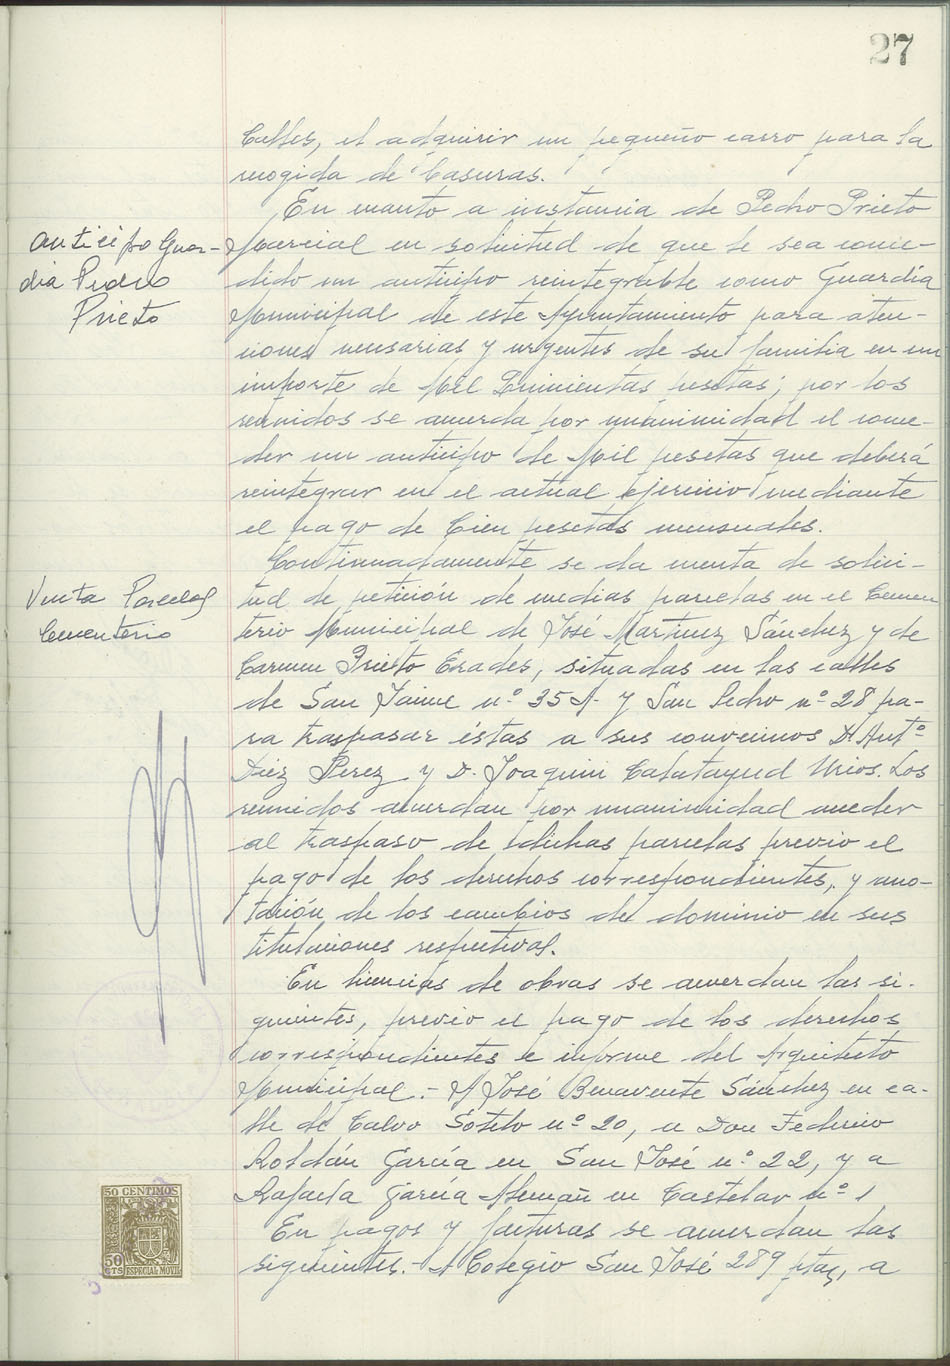 27
Calles, el adquirir un pequeño carro para la
recogida de basuras.
En cuanto a instancia de Pedro Prieto
Anticipo Guar-
dia Pedro
Prieto
Marcial en solicitud de que le sea conce-
dido un anticipo reintegrable como Guardia
Municipal de este Ayuntamiento para aten-
ciones necesarias y urgentes de su familia en un
importe de Mil Quinientas pesetas; por los
reunidos se acuerda por unanimidad el conce-
der un anticipo de Mil pesetas que deberá
reintegrar en el actual ejercicio mediante
el pago de Cien pesetas mensuales.
Continuadamente se da cuenta de solici-
Venta Parcelas
Cementerio
tud de petición de medias parcelas en el Cemen
terio Municipal de José Martinez Sánchez y de
Carmen Prieto Erades, situadas en las calles
de San Jaime nº 35 A. y San Pedro nº 28 pa-
ra traspasar éstas a sus convecinos D. Antº
Diez Perez y D. Joaquin Calatayud Urios. Los
reunidos acuerdan por unanimidad acceder
al traspaso de dichas parcelas previo el
pago de los derechos correspondientes, y ano-
tación de los cambios de dominio en sus
titulaciones respectivas.
En licencias de obras se acuerdan las si-
guientes, previo el pago de los derechos
correspondientes e informe del Arquitecto
Municipal.- A José Benavente Sánchez en ca-
lle de Calvo Sotelo nº 20, a Don Federico
Roldán García en San José nº 22, y a
Rafaela García Alemañ en Castelar nº 1
En pagos y facturas se acuerdan las
siguientes.- A Colegio San José 289 ptas, a
50 CENTIMOS
50
CTS
ESPECIAL MOVIL